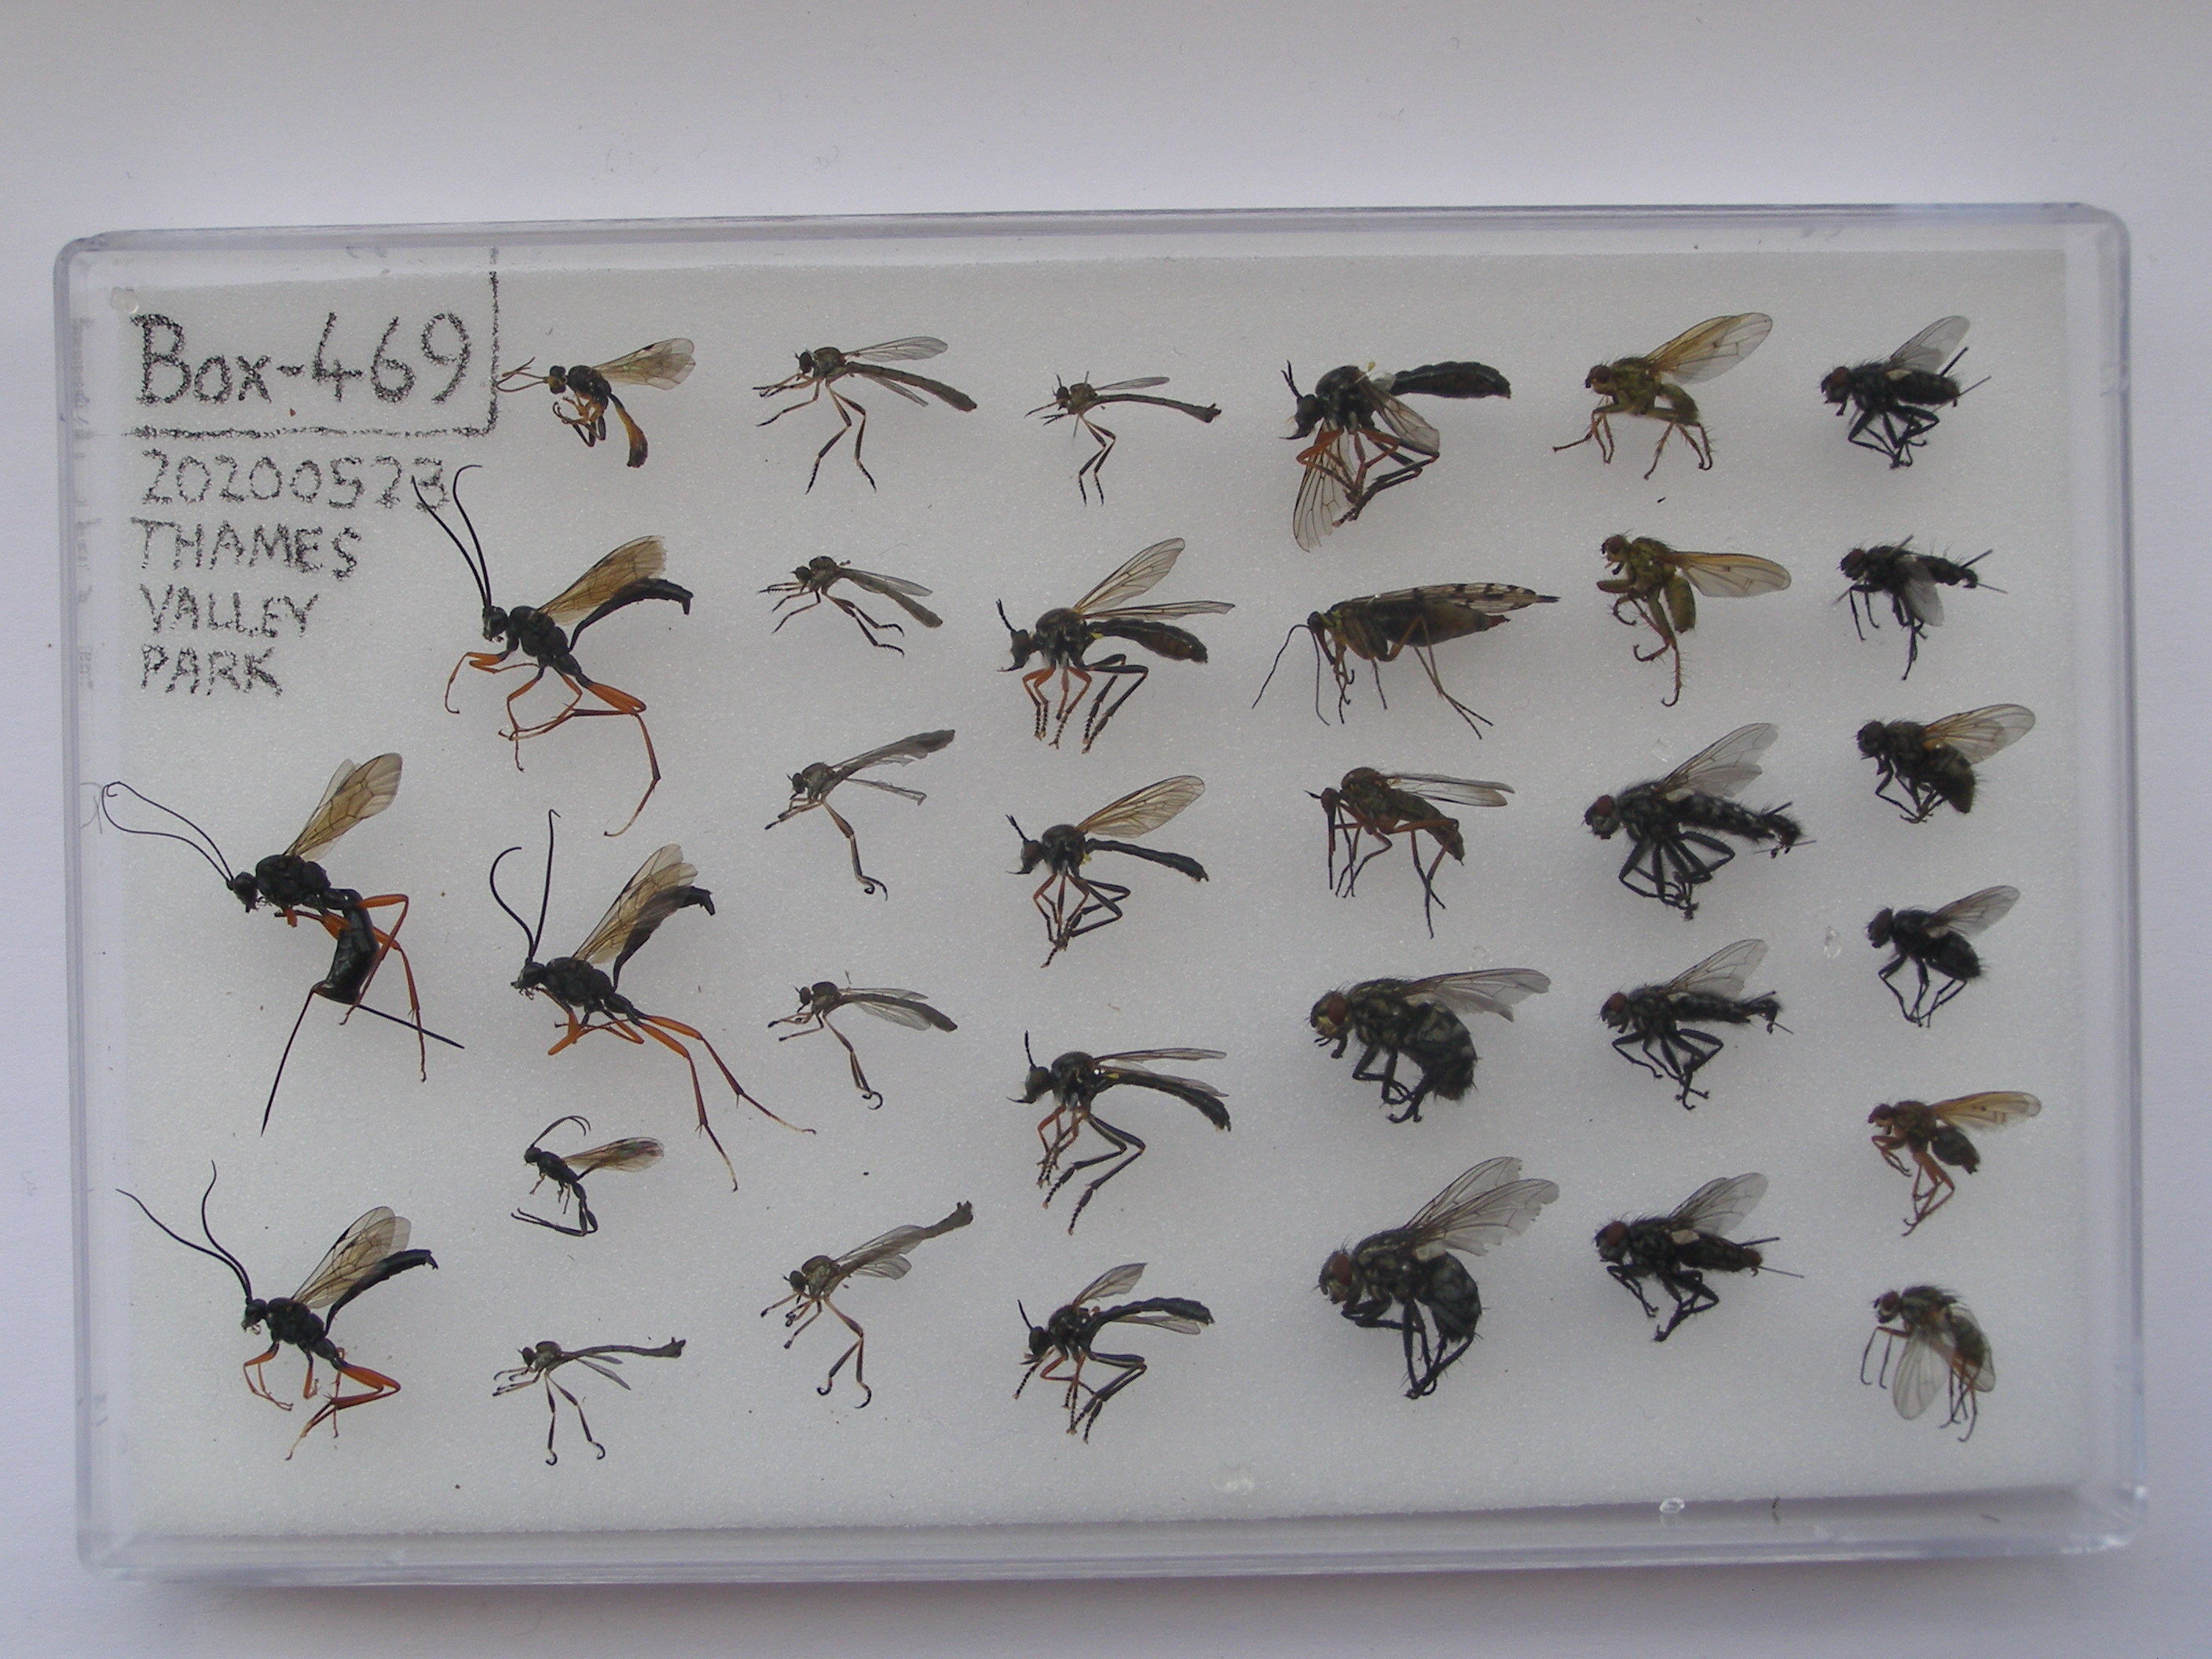 Box-469
20200523
THAMES
VALLEY
PARK